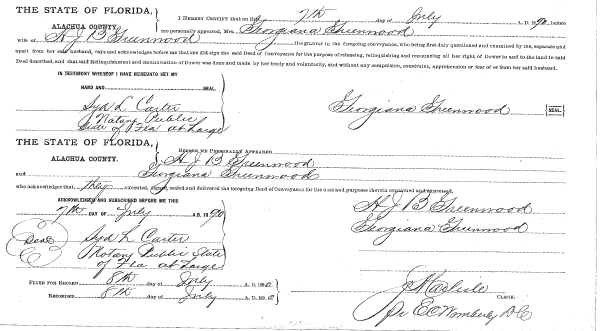 THE STATE OF FLORIDA,
ALACHUA COUNTY.
I HEREBY CERTIFY that on this 7th day of July A. D. 1890 before
me personally appeared, Mrs. Georgiana Greenwood
wife of H J B Greenwood the grantor in the foregoing conveyance, who being first duly questioned and examined by me, separate and
apart from her said husband, says and acknowledges before me that she did sign the said Deed of Conveyance for the purpose of releasing, relinquishing and renouncing all her right of Dower in and to the land in said
Deed described, and that said Relinquishment and Renunciation of Dower was done and made by her freely and voluntarily, and without any compulsion, constraint, apprehension or fear of or from her said husband.
IN TESTIMONY WHEREOF I HAVE HEREUNTO SET MY
HAND AND SEAL.
Syd L Carter
Notary Public
State of Fla at Large
Georgiana Greenwood SEAL
THE STATE OF FLORIDA,
ALACHUA COUNTY.
BEFORE ME PERSONALLY APPEARED
H J B Greenwood
and Georgiana Greenwood
who acknowledges that they executed, signed, sealed and delivered the foregoing Deed of Conveyance for the uses and purposes therein concerned and expressed.
ACKNOWLEDGED AND SUBSCRIBED BEFORE ME THIS
7th DAY OF July A.D. 1890
H J B Greenwood
Georgiana Greenwood
Seal
Syd L Carter
Notary Public State
of Fla at Large
FILED FOR RECORD 8th day of July A. D. 1890
RECORDED 8th day of July A. D. 1890
CLERK.
D C